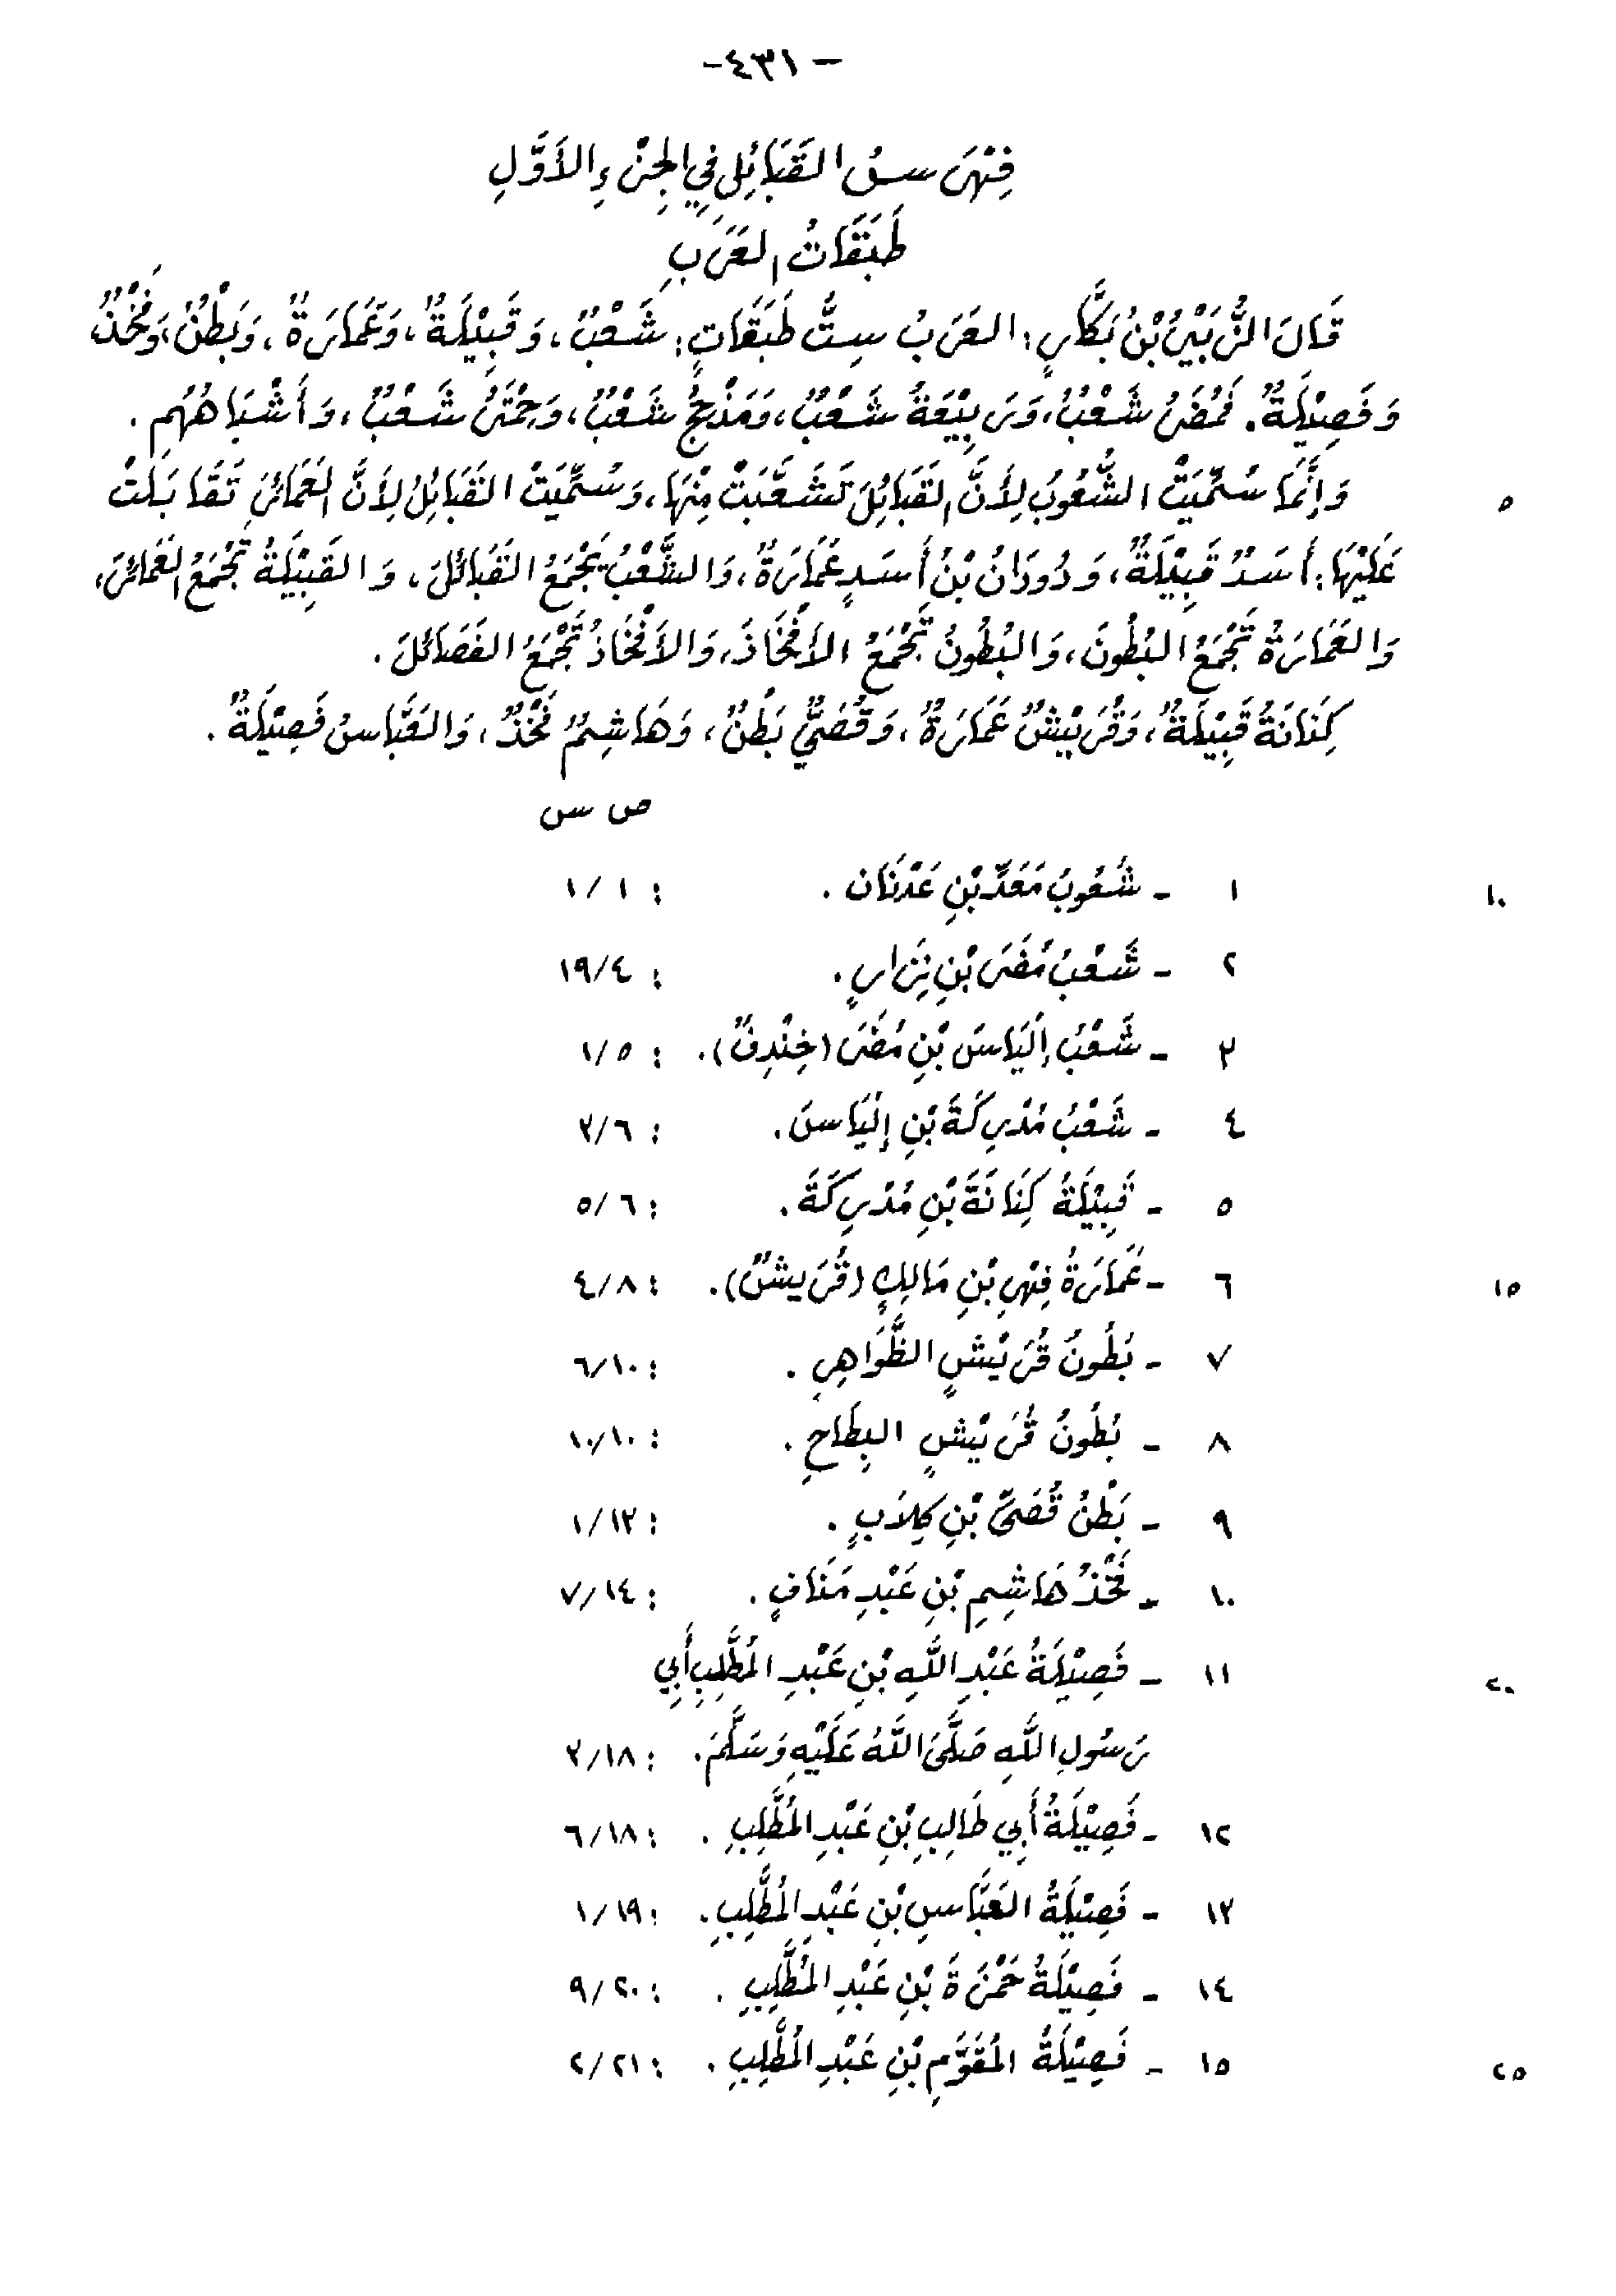 - ٤٣١ -
فِهْرَسُ القَبَائِلِ فِي الجُزْءِ الأَوَّلِ
طَبَقَاتُ العَرَبِ
قَالَ الزُّبَيْرُ بْنُ بَكَّارٍ: العَرَبُ سِتُّ طَبَقَاتٍ: شَعْبٌ، وَقَبِيْلَةٌ، وَعَمَارَةٌ، وَبَطْنٌ، وَفَخْذٌ،
وَفَصِيْلَةٌ. فَمُضَرُ شَعْبٌ، وَرَبِيْعَةُ شَعْبٌ، وَمَذْحِجُ شَعْبٌ، وَحِمْيَرُ شَعْبٌ، وَأَشْبَاهُهُم.
وَإِنَّمَا سُمِّيَتْ الشُّعُوبُ لِأَنَّ القَبَائِلَ تَشَعَّبَتْ مِنْهَا، وَسُمِّيَتْ القَبَائِلُ لِأَنَّ العَمَائِرَ تَقَابَلَتْ ٥
عَلَيْهَا: أَسَدٌ قَبِيْلَةٌ، وَدُودَانُ بْنُ أَسَدٍ عَمَارَةٌ، وَالشَّعْبُ يَجْمَعُ القَبَائِلَ، وَالقَبِيْلَةُ تَجْمَعُ العَمَائِرَ،
وَالعَمَارَةُ تَجْمَعُ البُطُونَ، وَالبُطُونُ تَجْمَعُ الأَفْخَاذَ، وَالأَفْخَاذُ تَجْمَعُ الفَصَائِلَ.
كِنَانَةُ قَبِيْلَةٌ، وَقُرَيْشٌ عَمَارَةٌ، وَقُصَيٌّ بَطْنٌ، وَهَاشِمٌ فَخْذٌ، وَالعَبَّاسُ فَصِيْلَةٌ.
ص س
١ - شُعُوبُ مَعَدِّ بْنِ عَدْنَان. : ١/١ ١٠
٢ - شَعْبُ مُضَرَ بْنِ نِزَارٍ. : ١٩/٤
٣ - شَعْبُ إلْيَاسَ بْنِ مُضَرَ (خِنْدِفٌ). : ١/٥
٤ - شَعْبُ مُدْرِكَةَ بْنِ إِلْيَاسَ. : ٣/٦
٥ - قَبِيْلَةُ كِنَانَةَ بْنِ مُدْرِكَةَ. : ٥/٦
٦ - عَمَارَةُ فِهْرِ بْنِ مَالِكٍ (قُرَيشٌ). : ٤/٨ ١٥
٧ - بُطُونُ قُرَيْشٍ الظَّوَاهِرِ. : ٦/١٠
٨ - بُطُونُ قُرَيْشٍ البِطَاحِ. : ١٠/١٠
٩ - بَطْنُ قُصَيِّ بْنِ كِلاَبٍ. : ١/١٣
١٠ - فَخْذُ هَاشِمِ بْنِ عَبْدِ مَنَافٍ. : ٧/١٤
١١ - فَصِيْلَةُ عَبْدِ اللَّهِ بْنِ عَبْدِ المُطَّلِبِ أَبِي ٢٠
رَسُولِ اللَّهِ صَلَّى اللَّهُ عَلَيْهِ وَسَلَّمَ. : ٣/١٨
١٢ - فَصِيْلَةُ أَبِي طَالِبِ بْنِ عَبْدِ المُطَّلِبِ. : ٦/١٨
١٣ - فَصِيْلَةُ العَبَّاسِ بْنِ عَبْدِ المُطَّلِبِ. : ١/١٩
١٤ - فَصِيْلَةُ حَمْزَةَ بْنِ عَبْدِ المُطَّلِبِ. : ٩/٢٠
١٥ - فَصِيْلَةُ المُقَوَّمِ بْنِ عَبْدِ المُطَّلِبِ. : ٢/٢١ ٢٥